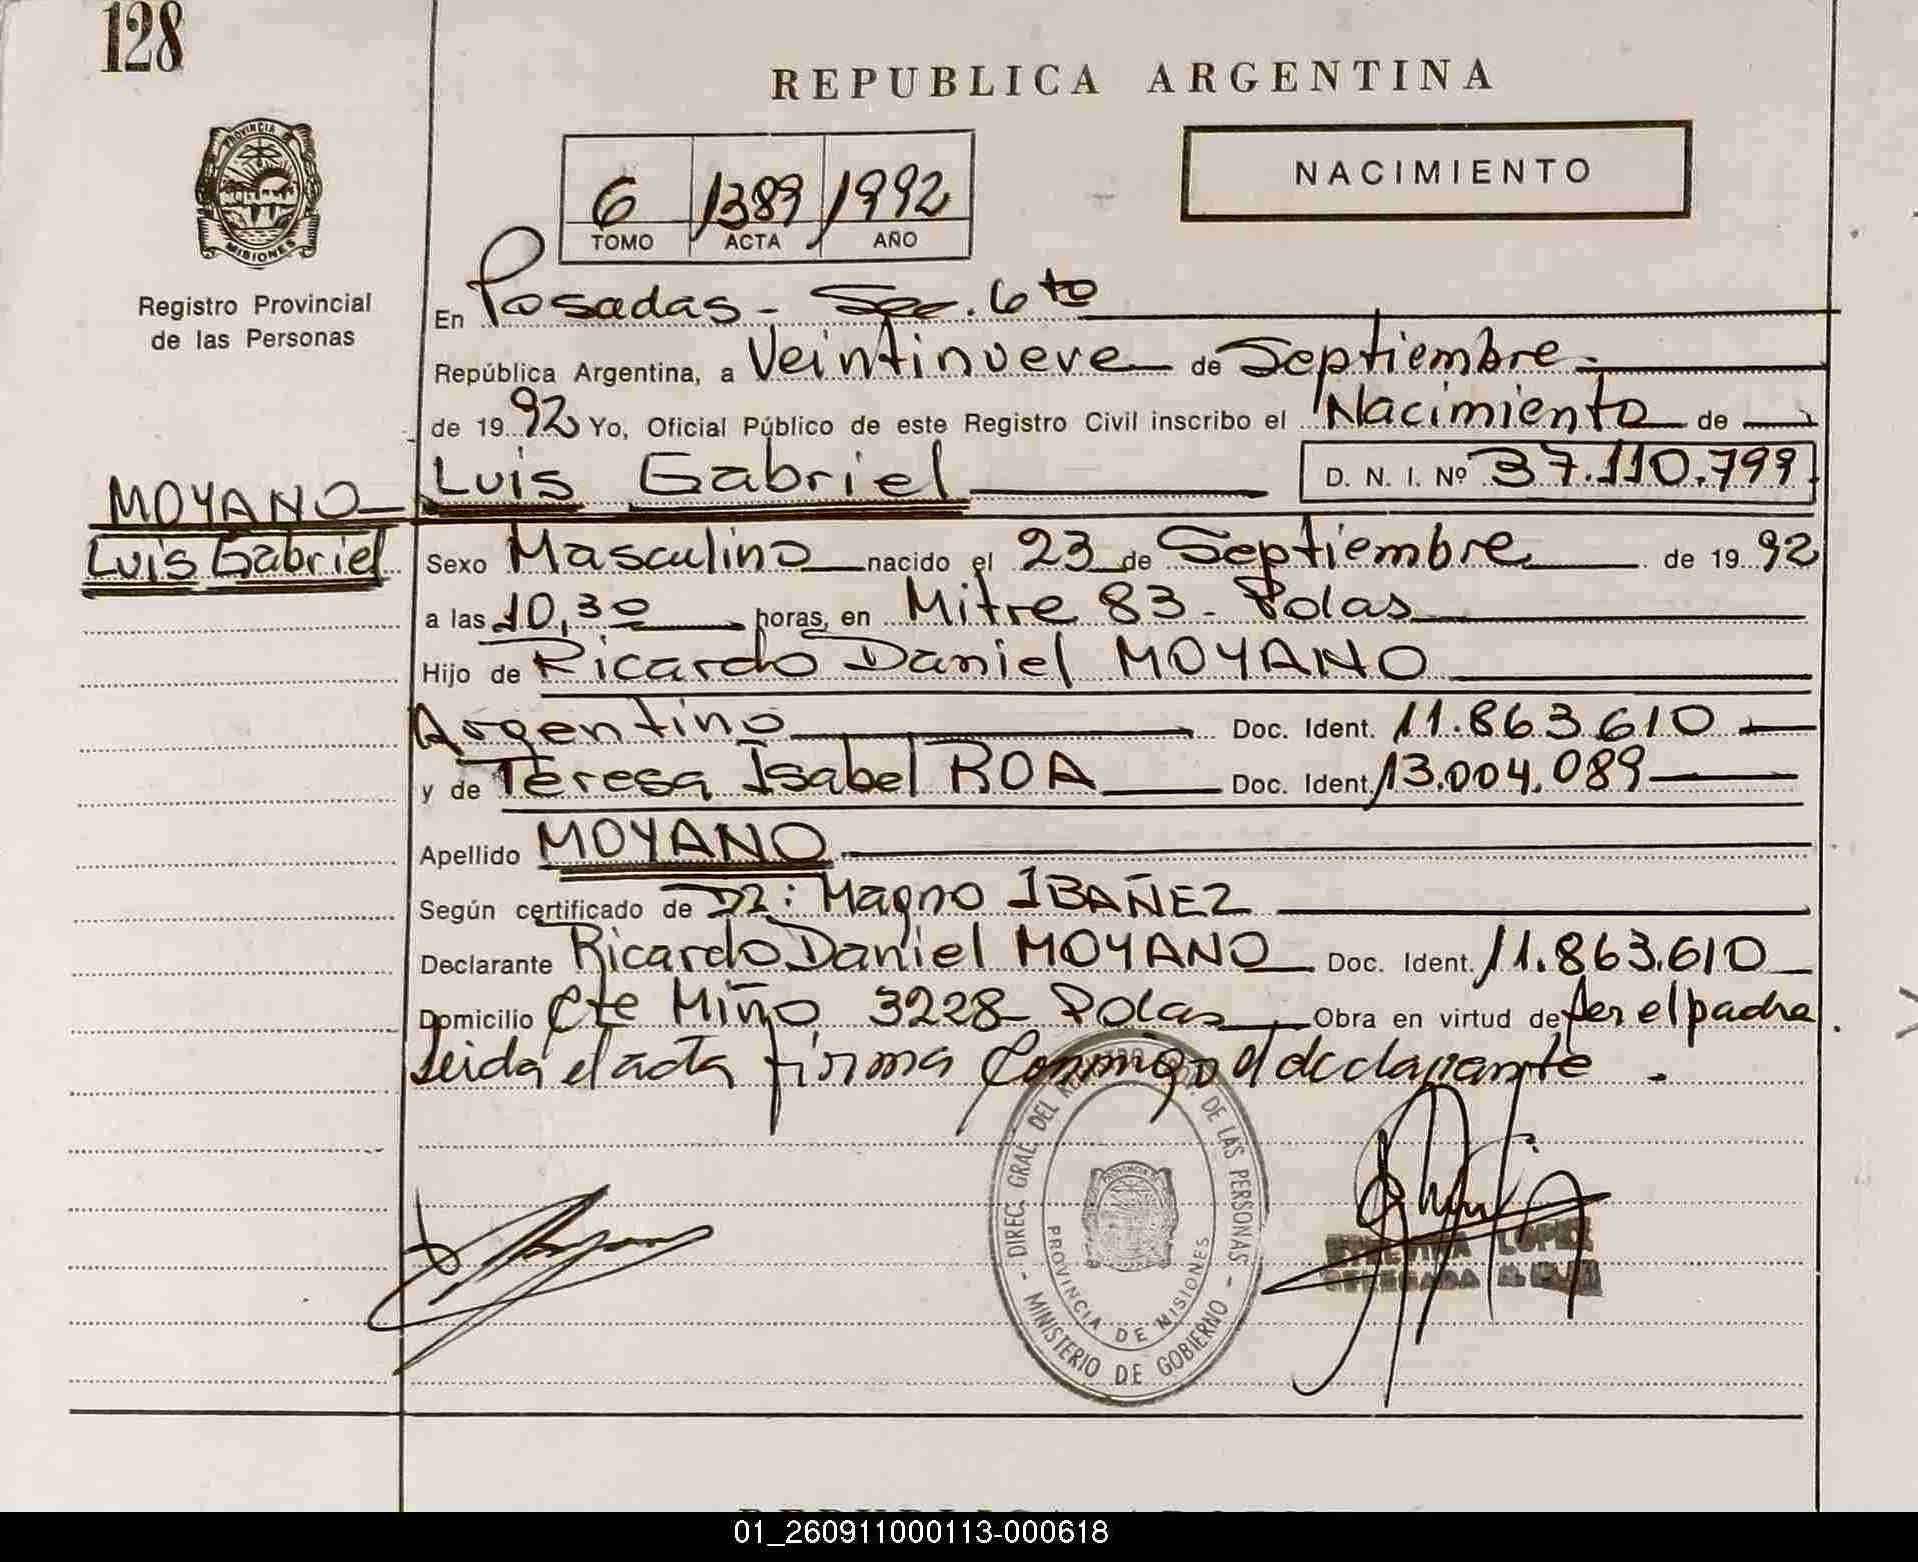 128
REPUBLICA ARGENTINA
PROVINCIA
MISIONES
NACIMIENTO
6 1389 1992
TOMO ACTA AÑO
Registro Provincial
de las Personas
En Posadas - Sec. 6to
República Argentina, a Veintinueve de Septiembre
de 1992 Yo, Oficial Público de este Registro Civil inscribo el Nacimiento de
MOYANO Luis Gabriel D. N. I. Nº 37.110.799
Luis Gabriel Sexo Masculino nacido el 23 de Septiembre de 1992
a las 10,30 horas, en Mitre 83 - Pdas
Hijo de Ricardo Daniel MOYANO
Argentino Doc. Ident. 11.863.610
y de Teresa Isabel ROA Doc. Ident. 13.004.089
Apellido MOYANO
Según certificado de Dr: Magno IBAÑEZ
Declarante Ricardo Daniel MOYANO Doc. Ident. 11.863.610
Domicilio Cte Miño 3228 Pdas Obra en virtud de ser el padre.
Leida el acta firma conmigo el declarante.
DIREC. GRAL. DEL DE LAS PERSONAS
PROVINCIA DE MISIONES
MINISTERIO DE GOBIERNO
LOPEZ
DELEGADA
01_260911000113-000618